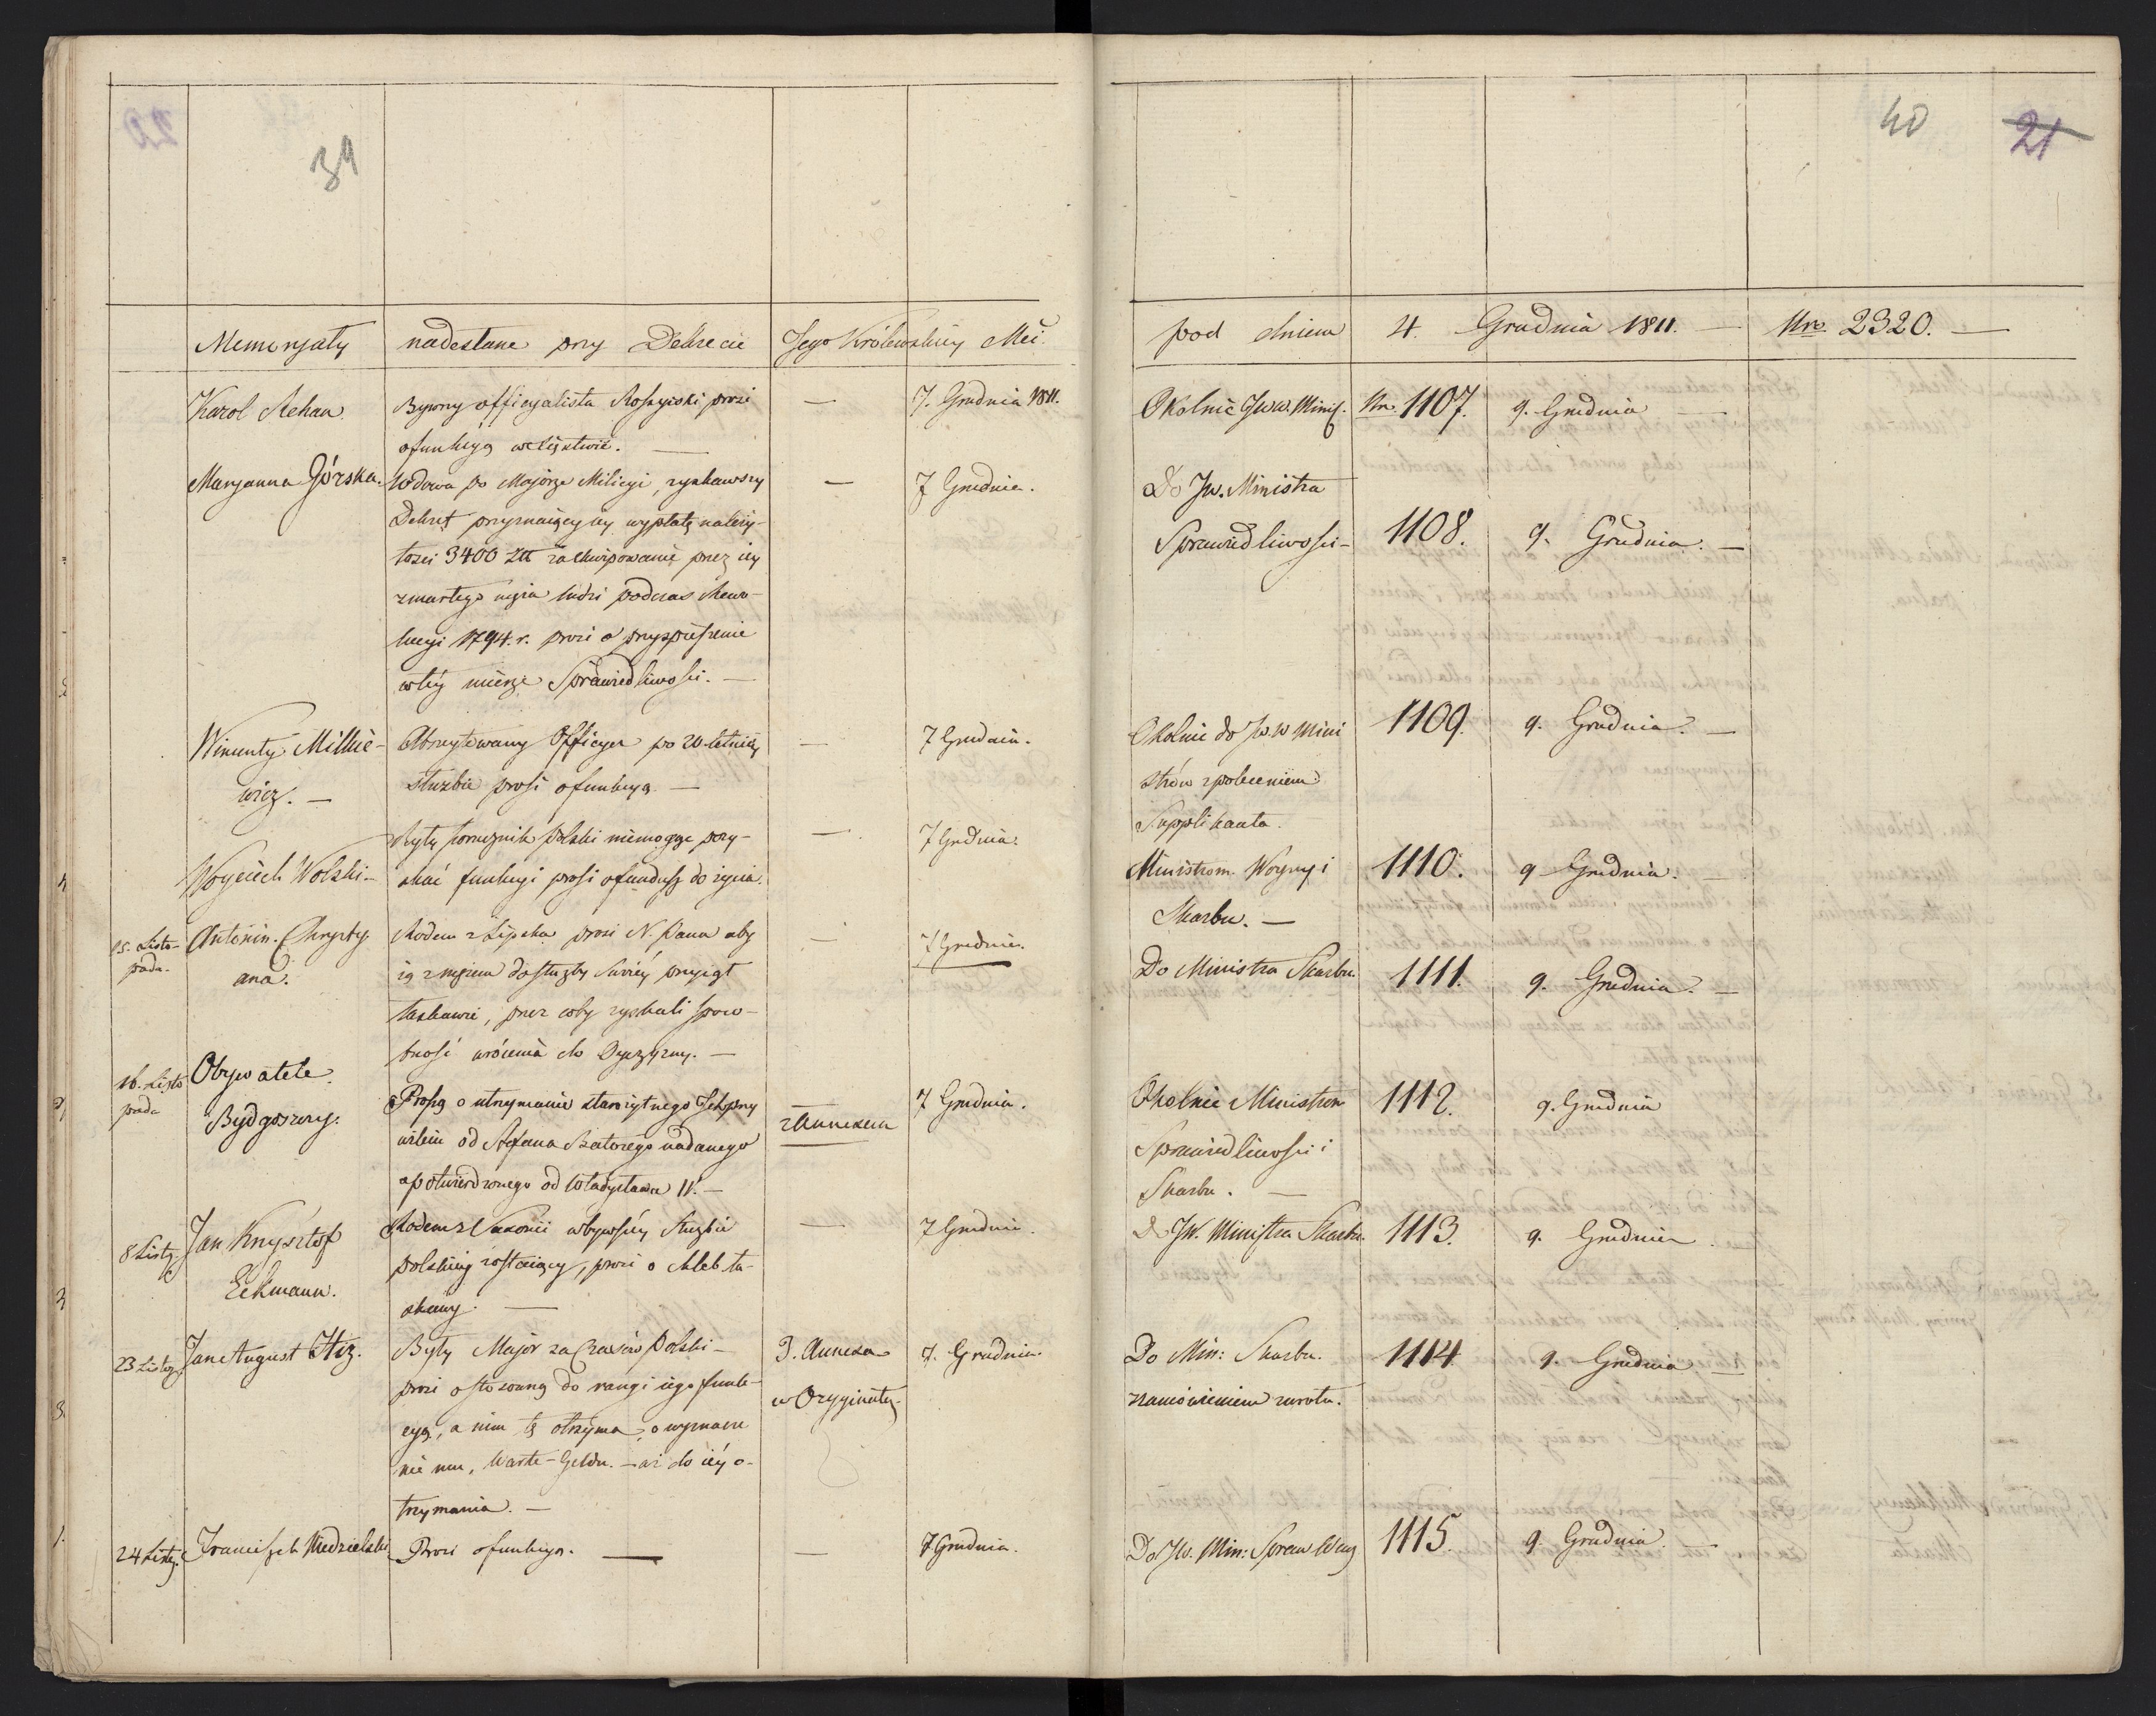 39
40
21
Memoryały nadesłane przy Dekrecie Jego Królewskiey Mci. pod dniem 4. Grudnia 1811. — Nro 2320. —
Karol Rehan. Bywny officyalista Rossyiski prosi — 7. Grudnia 1811. Okolnie JWW. Minis. Nro 1107. 9. Grudnia —
o funkcyą w Xięstwie. —
Maryanna Górska. Wdowa po Majorze Milicyi, zyskawszy — 7 Grudnia. Do JW. Ministra
Dekret przyznaiący iey wypłatę należy- Sprawiedliwości — 1108. 9. Grudnia. —
tości 3400 Złł za ekwipowanie przez iey
zmarłego męża ludzi podczas Rewo-
lucyi 1794. r. prosi o przyspieszenie
w tey mierze Sprawiedliwości. —
Wincenty Milkie- Abszytowany Officyer po 20-letniey — 7 Grudnia. Okolnie do JWW Mini 1109. 9. Grudnia. —
wicz. — służbie prosi o funkcyą. — strów z poleceniem
Supplikanta.
Były Porucznik Polski niemogąc pozy- — 7 Grudnia.
Woyciech Wolski — skać funkcyi prosi o fundusz do życia. Ministrom Woyny i 1110. 9 Grudnia. —
Skarbu. —
15. Listo- Antonin. Chrysty- Rodem z Lipska prosi N. Pana aby — 7 Grudnia. Do Ministra Skarbu. 1111. 9. Grudnia. —
pada. ana. ią z mężem do służby Swoiey przyiął
łaskawie, przez coby zyskali spos-
bność wrócenia do Oyczyzny. —
16. Listo Obywatele
pada Bydgoszczy. Proszą o utrzymanie starożytnego Ich przy z Annexem 7 Grudnia. Okolnie Ministrom 1112. 9. Grudnia
wileiu od Stefana Batorego nadanego Sprawiedliwości i
a potwierdzonego od Władysława IV. — Skarbu. —
8 Listp. Jan Krzysztof Rodem z Saxonii w bywszey Służbie — 7 Grudnia. Do JW. Ministra Skarbu. 1113. 9. Grudnia.
Eckmann. polskiey zostaiący, prosi o chleb ła-
skawy. —
23 Listop. Jan August Hiz. Były Major za Czasów Polski — 3. Annexa 7. Grudnia. Do Min: Skarbu. 1114. 9. Grudnia —
prosi o stosowną do rangi iego funk- w Oryginale. z zamówieniem zwrotu.
cyą, a nim tę otrzyma, o wyznacze
nie mu, Warte-Geldu. — aż do iéy o-
trzymania. —
24 Listp. Franciszek Niedzielski Prosi o funkcyą. — — 7 Grudnia. Do JW. Min: Spraw Wew 1115. 9. Grudnia. —